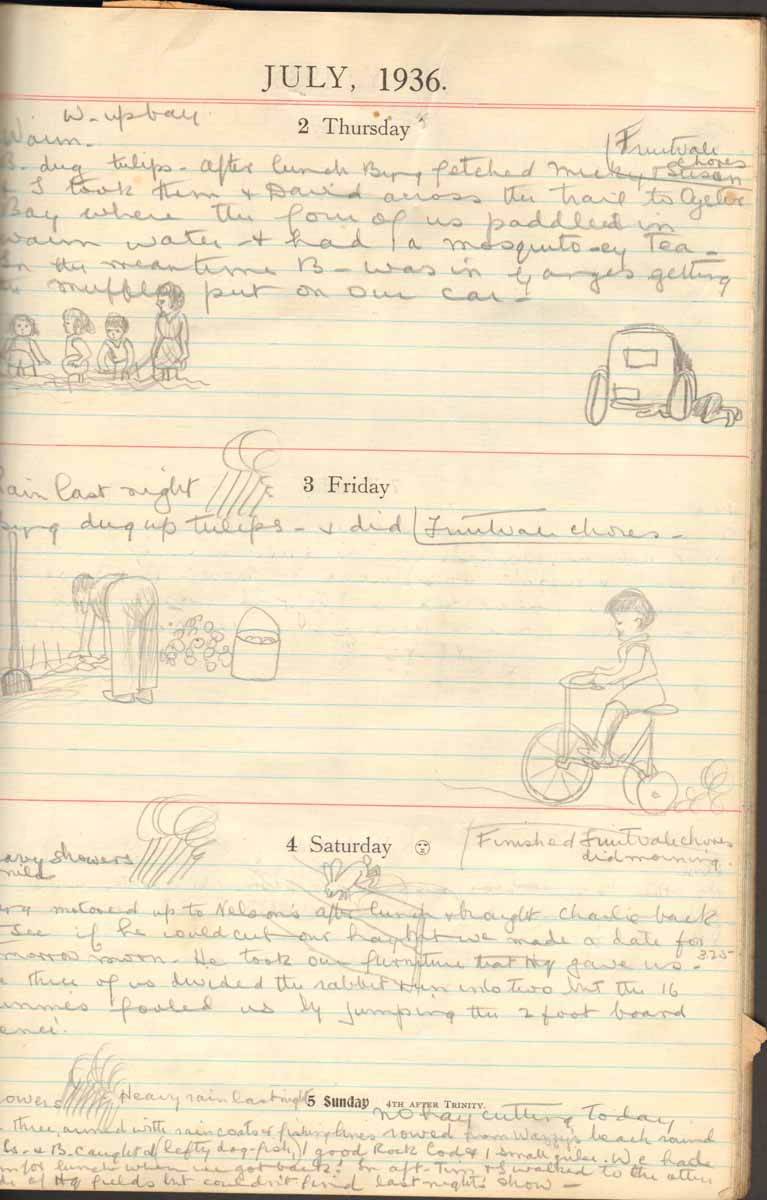 JULY, 1936.
W- up bay.
2 Thursday
Warm.
Fruitvale
chores
B- dug tulips- After lunch Byng fetched Micky & Susan
& I took them & David across the trail to
Bay where the four of us paddled in
warm water - & had a mosquito-ey Tea -
In the meantime B- was in Ganges getting
muffler put on our car -
3 Friday
Rain last night
Byng dug up tulips - & did Fruitvale chores -
4 Saturday
Finished Fruitvale chores
did morning.
Heavy showers
mild
Byng motored up to Nelson's after lunch & brought Charlie back
see if he could cut our hay but we made a date for
morrow morn. He took our furniture that Hq gave us - 3.25
three of us divided the rabbit run into two but the 16
fooled us by jumping the 2 foot board
fence.
showers
Heavy rain last night
5 Sunday 4TH AFTER TRINITY.
No hay cutting today,
three, armed with raincoats & fishing lines rowed from beach round
& B. caught (lefty dog-fish) 1 good Rock Cod & 1 small We had
for lunch when we got back. In aft. Tim & I walked to the other
side of Hq fields but couldn't find last nights show -